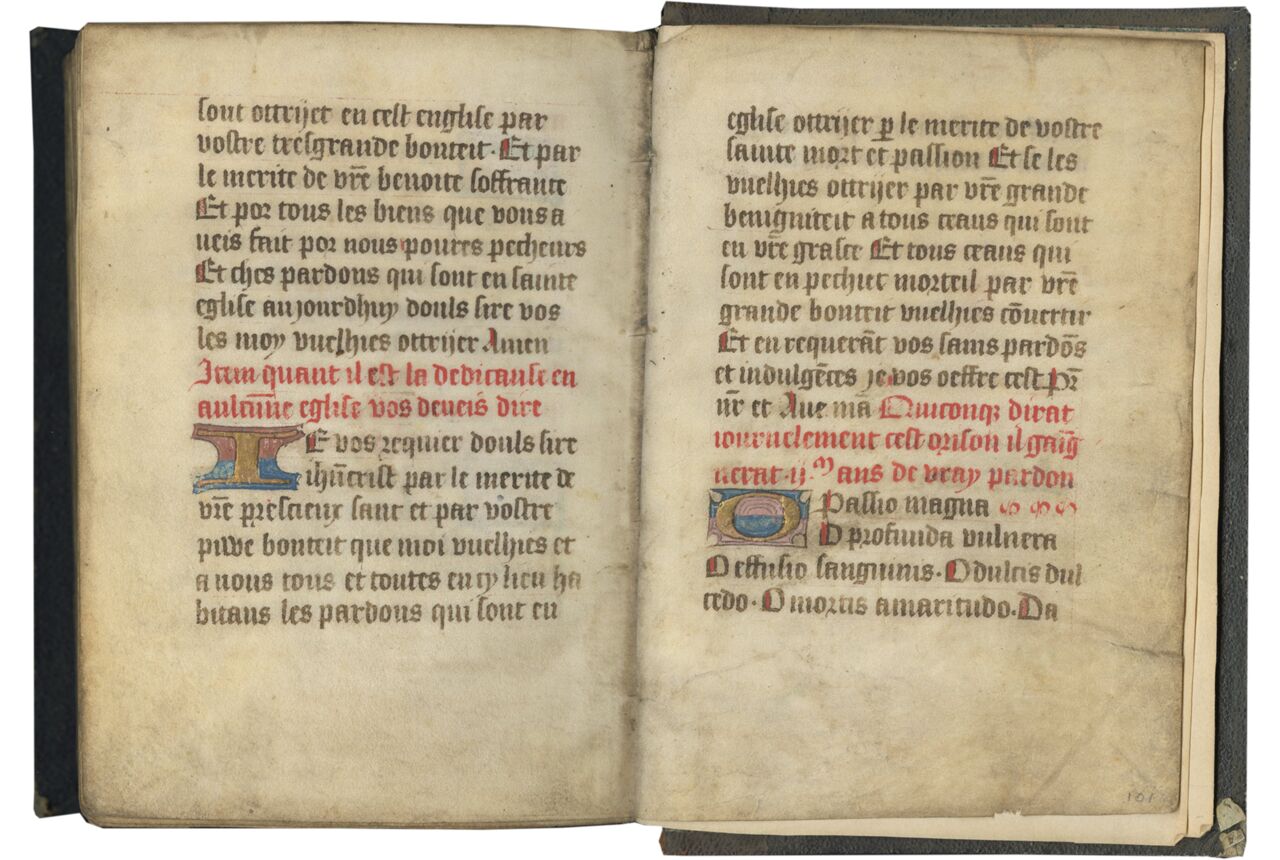 sont ottrijet en cest englise par
vostre tresgrande bonteit. Et par
le merite de vr̃e benoite soffrante
Et por tous les biens que vous a
ueis fait por nous poures pecheurs
Et ches pardons qui sont en sainte
eglise au jourdhuy douls sire vos
les moy vuelhies ottrijer Amen
Item quant il est la dedicause en
aulcũne eglise vos deueis dire
Ie vos requier douls sire
ihũcrist par le merite de
vr̃e prescieux sanc et par vostre
piwe bonteit que moi vuelhies et
a nous tous et toutes en cy lieu ha
bitans les pardons qui sont en
eglise ottrijer ꝑ le merite de vostre
sainte mort et passion Et se les
vuelhies ottrijer par vr̃e grande
benigniteit a tous ceaus qui sont
en vr̃e grasce Et tous ceaus qui
sont en pechiet morteil par vr̃e
grande bonteit vuelhies cõuertir
Et en requerãt vos sains pardõs
et indulgẽces je vos oeffre cest Pr̃
nr̃ et Aue mã Quiconqꝫ dirat
iournelement cest orison il gaig̃
nerat .ij. ᵐ ans de vray pardon
O Passio magna
O profunda vulnera
O effusio sanguinis. O dulcis dul
cedo. O mortis amaritudo. Da
101